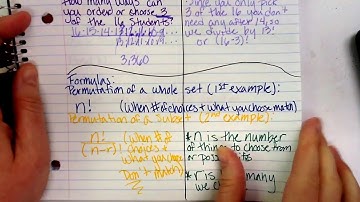 How many ways can
you order or choose 3
of the 16 students?
Since you only pick
3 of the 16 you don't
need any after 14, so
we divide by 13!
or (16-3)!
3,360
Formulas:
Permutation of a whole set (1st example):
n! (when # of choices + what you choose match)
Permutation of a Subset (2nd example):
n!
(n-r)!
(when # of
choices +
what you choose
Don't match)
*n is the number
of things to choose from
or possibilities
*r is how many
we